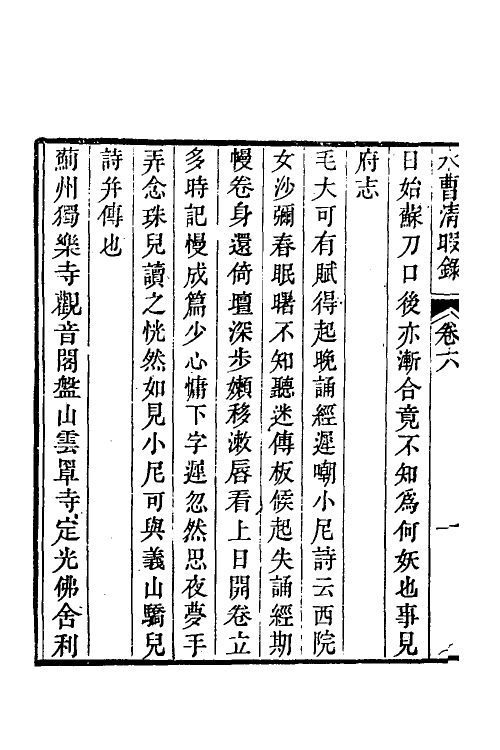 水曹清暇錄 卷六 一
日始蘇刀口後亦漸合竟不知爲何妖也事見
府志
毛大可有賦得起晚誦經遲嘲小尼詩云西院
女沙彌春眠曙不知聽迷傳板候起失誦經期
慢卷身還倚壇深步嬾移漱唇看上日開卷立
多時記慢成篇少心慵下字遲忽然思夜夢手
弄念珠兒讀之恍然如見小尼可與義山驕兒
詩幷傳也
薊州獨樂寺觀音閣盤山雲罩寺定光佛舍利